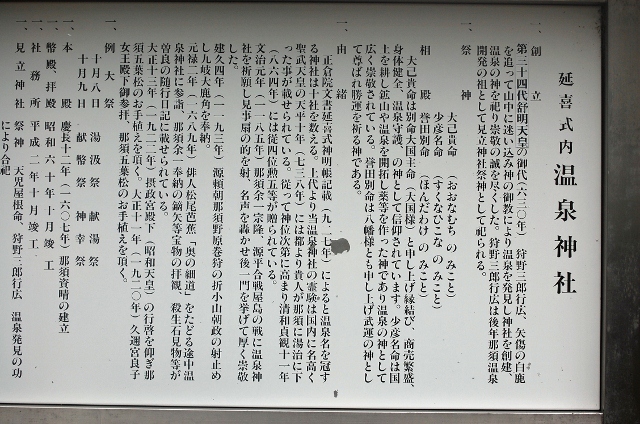 延喜式内 温泉神社
一、創立
第三十四代舒明天皇の御代（六三〇年） 狩野三郎行広、矢傷の白鹿
を追って山中に迷い込み神の御教により温泉を発見し神社を創建、
温泉の神を祀り崇敬の誠を尽くした。狩野三郎行広は後年那須温泉
開発の祖として見立神社祭神として祀られる。
一、祭神
大己貴命（おおなむちのみこと）
少彦名命（すくなひこなのみこと）
相殿 誉田別命（ほんだわけのみこと）
大己貴命は別命大国主命（大国様）と申し上げ縁結び、商売繁盛、
身体健全、温泉守護、の神として信仰されています。少彦名命は国
土を耕し鉱山や温泉を開拓し薬等を作った神であり温泉の神として
広く崇敬されている。誉田別命は八幡様とも申し上げ武運の神とし
て尊ばれ勝運を祈る神である。
一、由緒
正倉院文書延喜式神明帳記載（九二七年）によると温泉名を冠す
る神社は十社を数える。上代より当温泉神社の霊験は国内に名高く
聖武天皇の天平十年（七三八年）には都より貴人が那須に湯治に下
った事が載せられている。従って神位次第に高まり清和貞観十一年
（八六四年）には従四位勲五等が贈られている。
文治元年（一一八五年）那須余一宗隆、源平合戦屋島の戦に温泉神
社を祈願し見事扇の的を射、名声を轟かせ後一門を挙げて厚く崇敬
した。
建久四年（一一九三年） 源頼朝那須野原巻狩の折小山朝政の射止め
し九岐大鹿角を奉納。
元禄三年（一六八九年）俳人松尾芭蕉「奥の細道」をたどる途中温
泉神社に参詣、那須余一奉納の鏑矢等宝物の拝観、殺生石見物等が
曽良の随行日記に載せられている。
大正十一年（一九二二年）摂政宮殿下（昭和天皇）の行啓を仰ぎ那
須五葉松のお手植えを頂く。大正十一年（一九二〇年）久邇宮良子
女王殿下御参拝、那須五葉松のお手植えを頂く。
一、例大祭
十月八日 湯汲祭 献湯祭
十月九日 献幣祭 神幸祭
一、本殿 慶長十二年（一六〇七年）那須資晴の建立
一、幣殿、拝殿 昭和六十年十月竣工
一、社務所 平成二年十月竣工
一、見立神社 祭神 天児屋根命、狩野三郎行広 温泉発見の功
により合祀